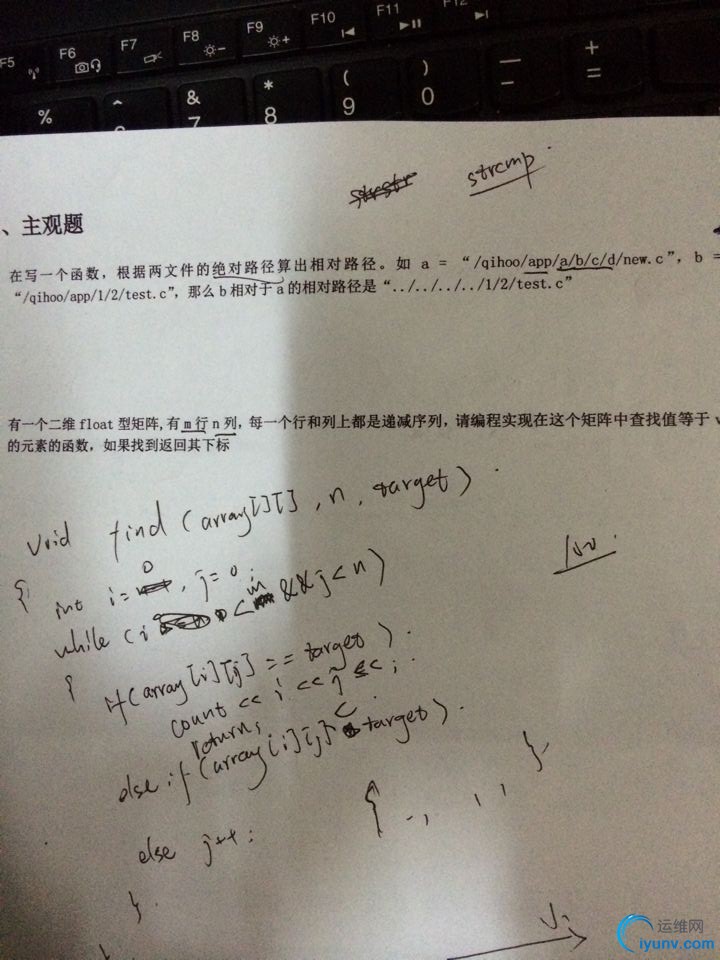 F5 F6 F7 F8 F9 F10 F11 F12
% ^ & 7 * 8 ( 9 ) 0 — - + =
strstr strcmp
、主观题
在写一个函数，根据两文件的绝对路径算出相对路径。如 a = “/qihoo/app/a/b/c/d/new.c”, b =
“/qihoo/app/1/2/test.c”, 那么 b 相对于 a 的相对路径是“../../../../1/2/test.c”
有一个二维 float 型矩阵, 有 m 行 n 列, 每一个行和列上都是递减序列, 请编程实现在这个矩阵中查找值等于 v
的元素的函数, 如果找到返回其下标
void find (array[][], n, target)
{ int i=0, j=0;
while (i < m && j < n)
{ if(array[i][j] == target)
count << i << j << ;
return;
else if (array[i][j] < target)
else j++;
}
运维网
iyunv.com